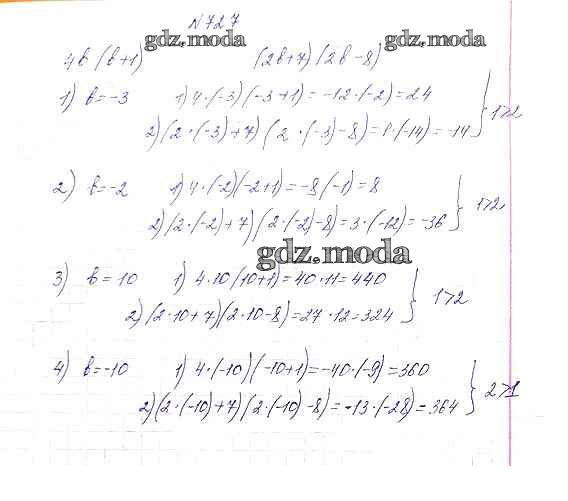 N 727
gdz.moda gdz.moda
4b (b+1) (2b+7) (2b-8)
1) b=-3 1) 4·(-3)(-3+1)=-12·(-2)=24
2)(2·(-3)+7)(2·(-3)-8)=1·(-14)=-14 } 1>2
2) b=-2 1) 4·(-2)(-2+1)=-8(-1)=8
2)(2·(-2)+7)(2·(-2)-8)=3·(-12)=-36 } 1>2
gdz.moda
3) b=10 1) 4·10(10+1)=40·11=440
2)(2·10+7)(2·10-8)=27·12=324 } 1>2
4) b=-10 1) 4·(-10)(-10+1)=-40·(-9)=360
2)(2·(-10)+7)(2·(-10)-8)=-13·(-28)=364 } 2>1